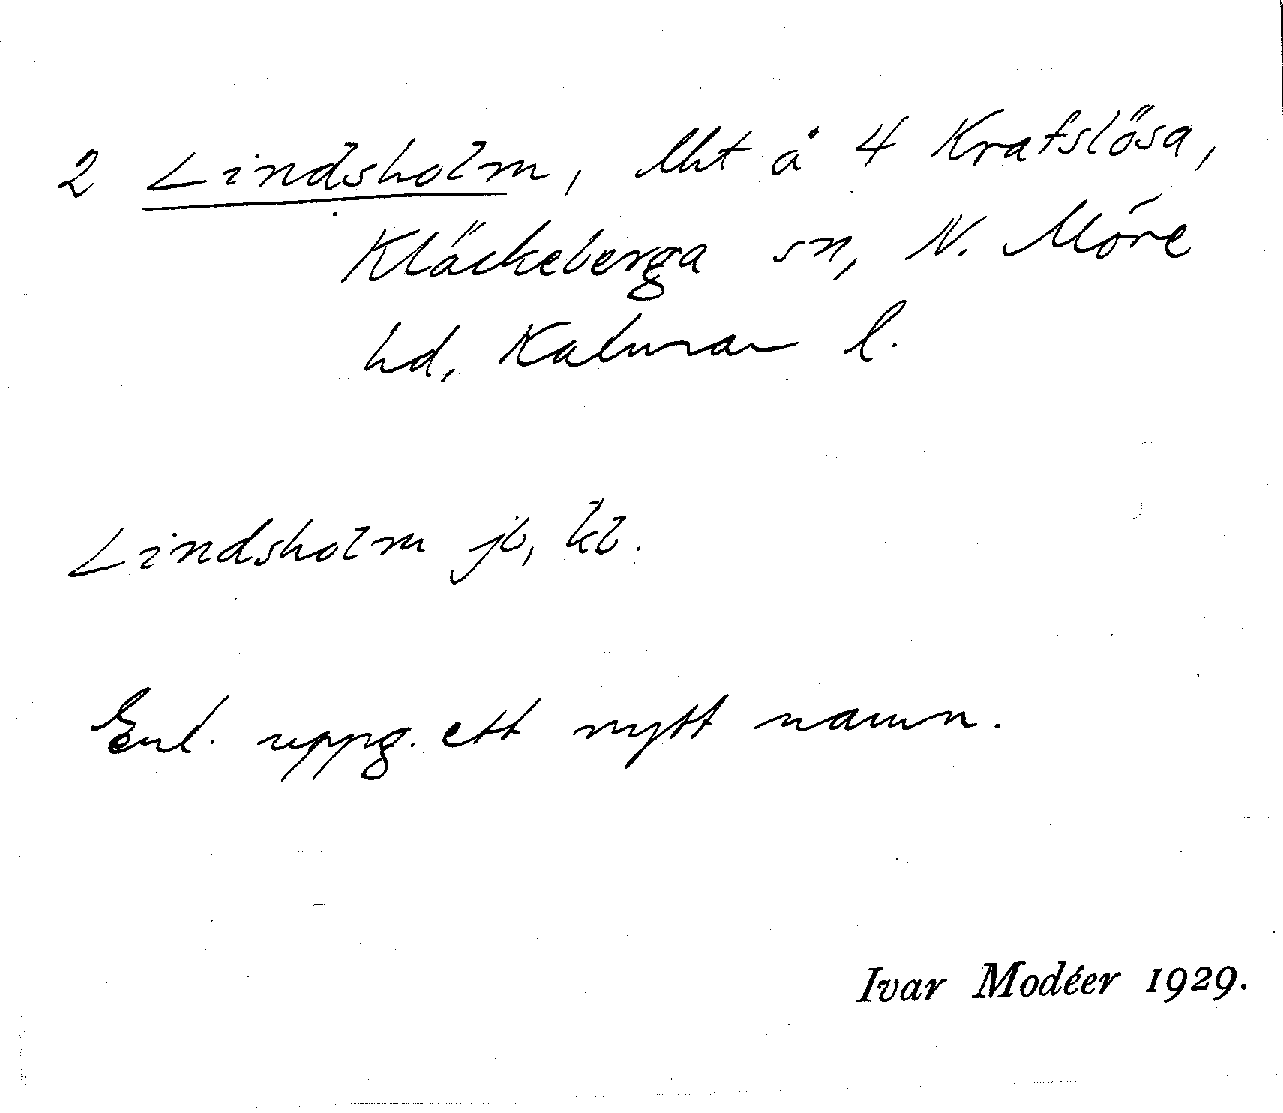 2 Lindsholm, lht å 4 Krafslösa,
Kläckeberga sn, N. Möre
hd, Kalmar l.
Lindsholm jb, kb.
Enl. uppg. ett nytt namn.
Ivar Modéer 1929.